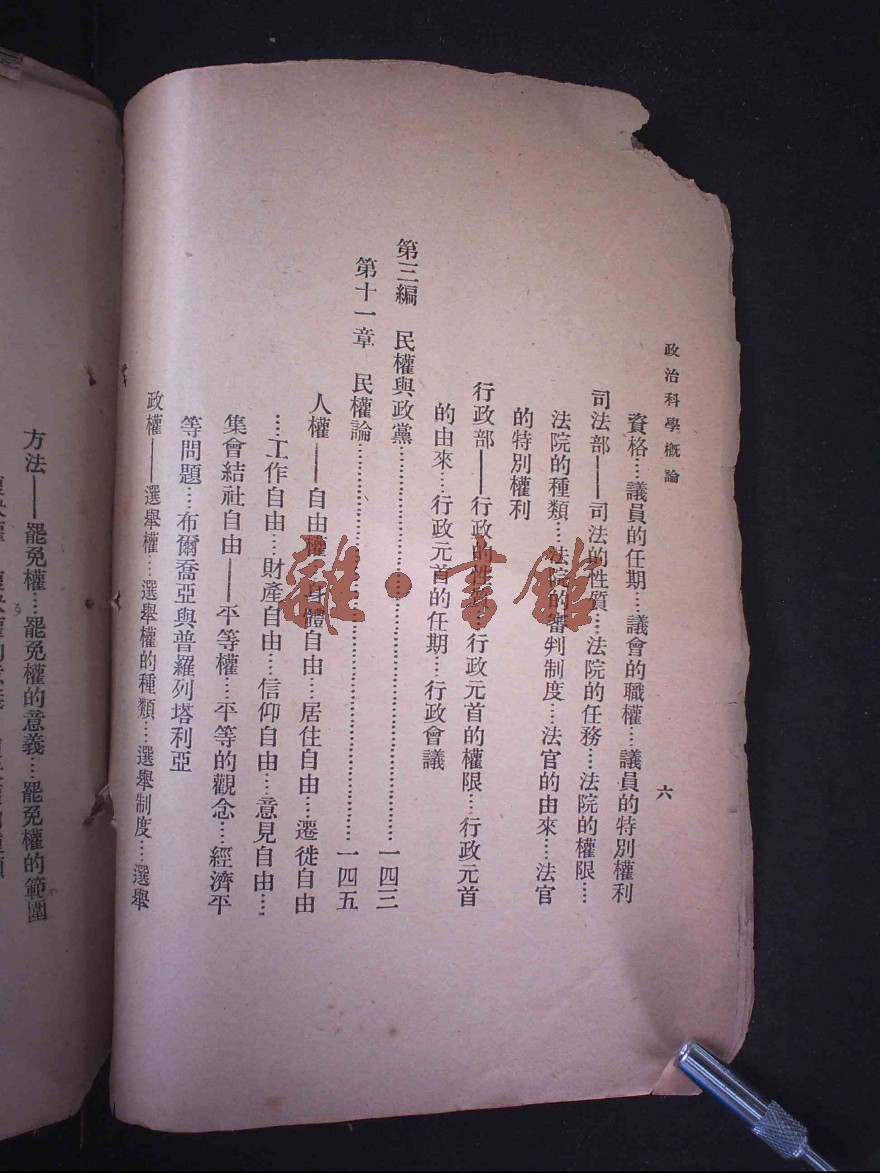 政治科學概論
六
資格……議員的任期……議會的職權……議員的特別權利
司法部——司法的性質……法院的任務……法院的權限……
法院的種類……法院的審判制度……法官的由來……法官
的特別權利
行政部——行政的性質……行政元首的權限……行政元首
的由來……行政元首的任期……行政會議
第三編 民權與政黨……一四三
第十一章 民權論……一四五
人權——自由權……身體自由……居住自由……遷徙自由
……工作自由……財產自由……信仰自由……意見自由……
集會結社自由——平等權……平等的觀念……經濟平
等問題……布爾喬亞與普羅列塔利亞
政權——選舉權……選舉權的種類……選舉制度……選舉
方法——罷免權……罷免權的意義……罷免權的範圍
雜·書館